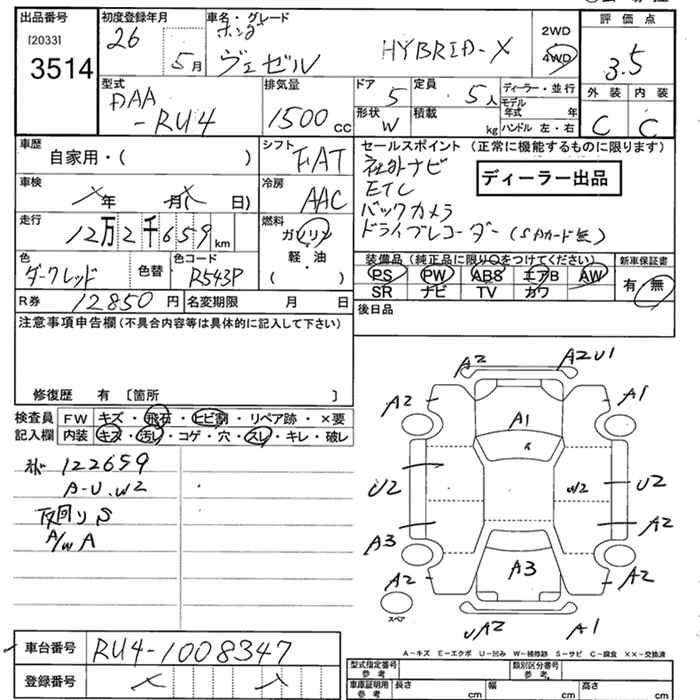 出品番号
[2033]
3514
初度登録年月
26
5月
車名・グレード
ホンダ
ヴェゼル
HYBRID-X
2WD
4WD
評価点
3.5
外装 内装
C C
型式
DAA
-RU4
排気量
1500cc
ドア
5
定員
5人
形状
W
積載
kg
ディーラー・並行
モデル年式 年
ハンドル 左・右
車歴
自家用・( )
シフト
FAT
車検
年 月( 日)
冷房
AAC
走行
12万2千659km
燃料
ガソリン
軽・油
( )
色
ダークレッド
色替
色コード
R543P
R券 12850円 名変期限 月 日
セールスポイント (正常に機能するものに限ります)
社外ナビ
ETC
バックカメラ
ドライブレコーダー(SDカード無)
ディーラー出品
装備品(純正品に限り○をつけてください)
PS PW ABS エアB AW
SR ナビ TV カワ
新車保証書
有・無
後日品
注意事項申告欄(不具合内容等は具体的に記入して下さい)
修復歴 有 [箇所 ]
検査員 FW キズ・飛石・ヒビ割・リペア跡・×要
記入欄 内装 キズ・汚レ・コゲ・穴・スレ・キレ・破レ
122659
A-U.W2
下回りS
A/W A
A2
A2U1
A2
A1
A1
U2
W2
U2
A3
A2
A3
A2
A2
スペア
A2
A1
A-キズ E-エクボ U-凹み W-補修跡 S-サビ C-腐食 ××-交換済
車台番号 RU4-1008347
登録番号
型式指定番号 参考
類別区分番号 参考
車庫証明用 参考 長さ cm 幅 cm 高さ cm